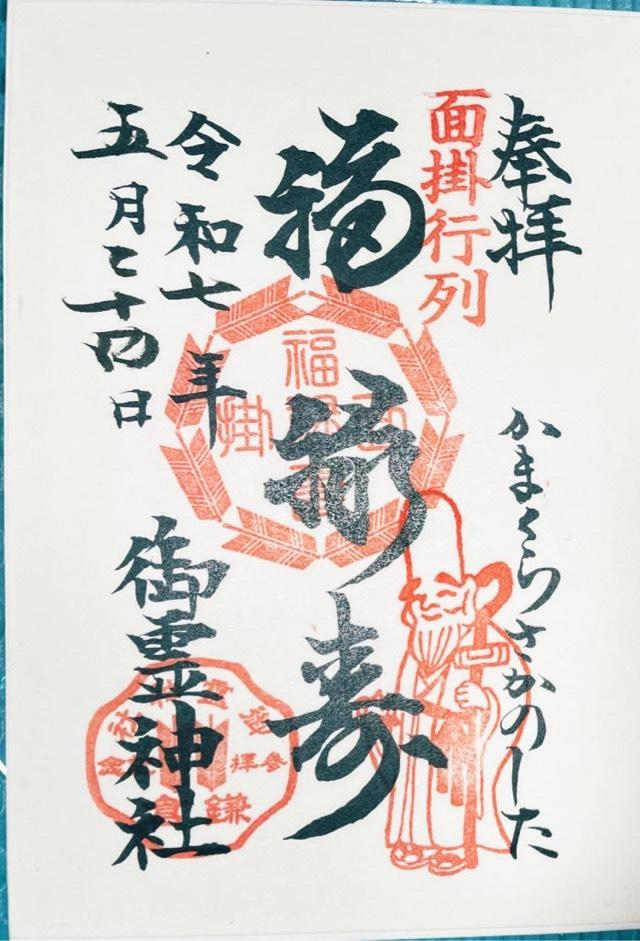 奉拝
かまくらさかのした
面掛行列
福禄寿
令和七年
五月二十四日
御霊神社
福
掛
参拝
鎌倉